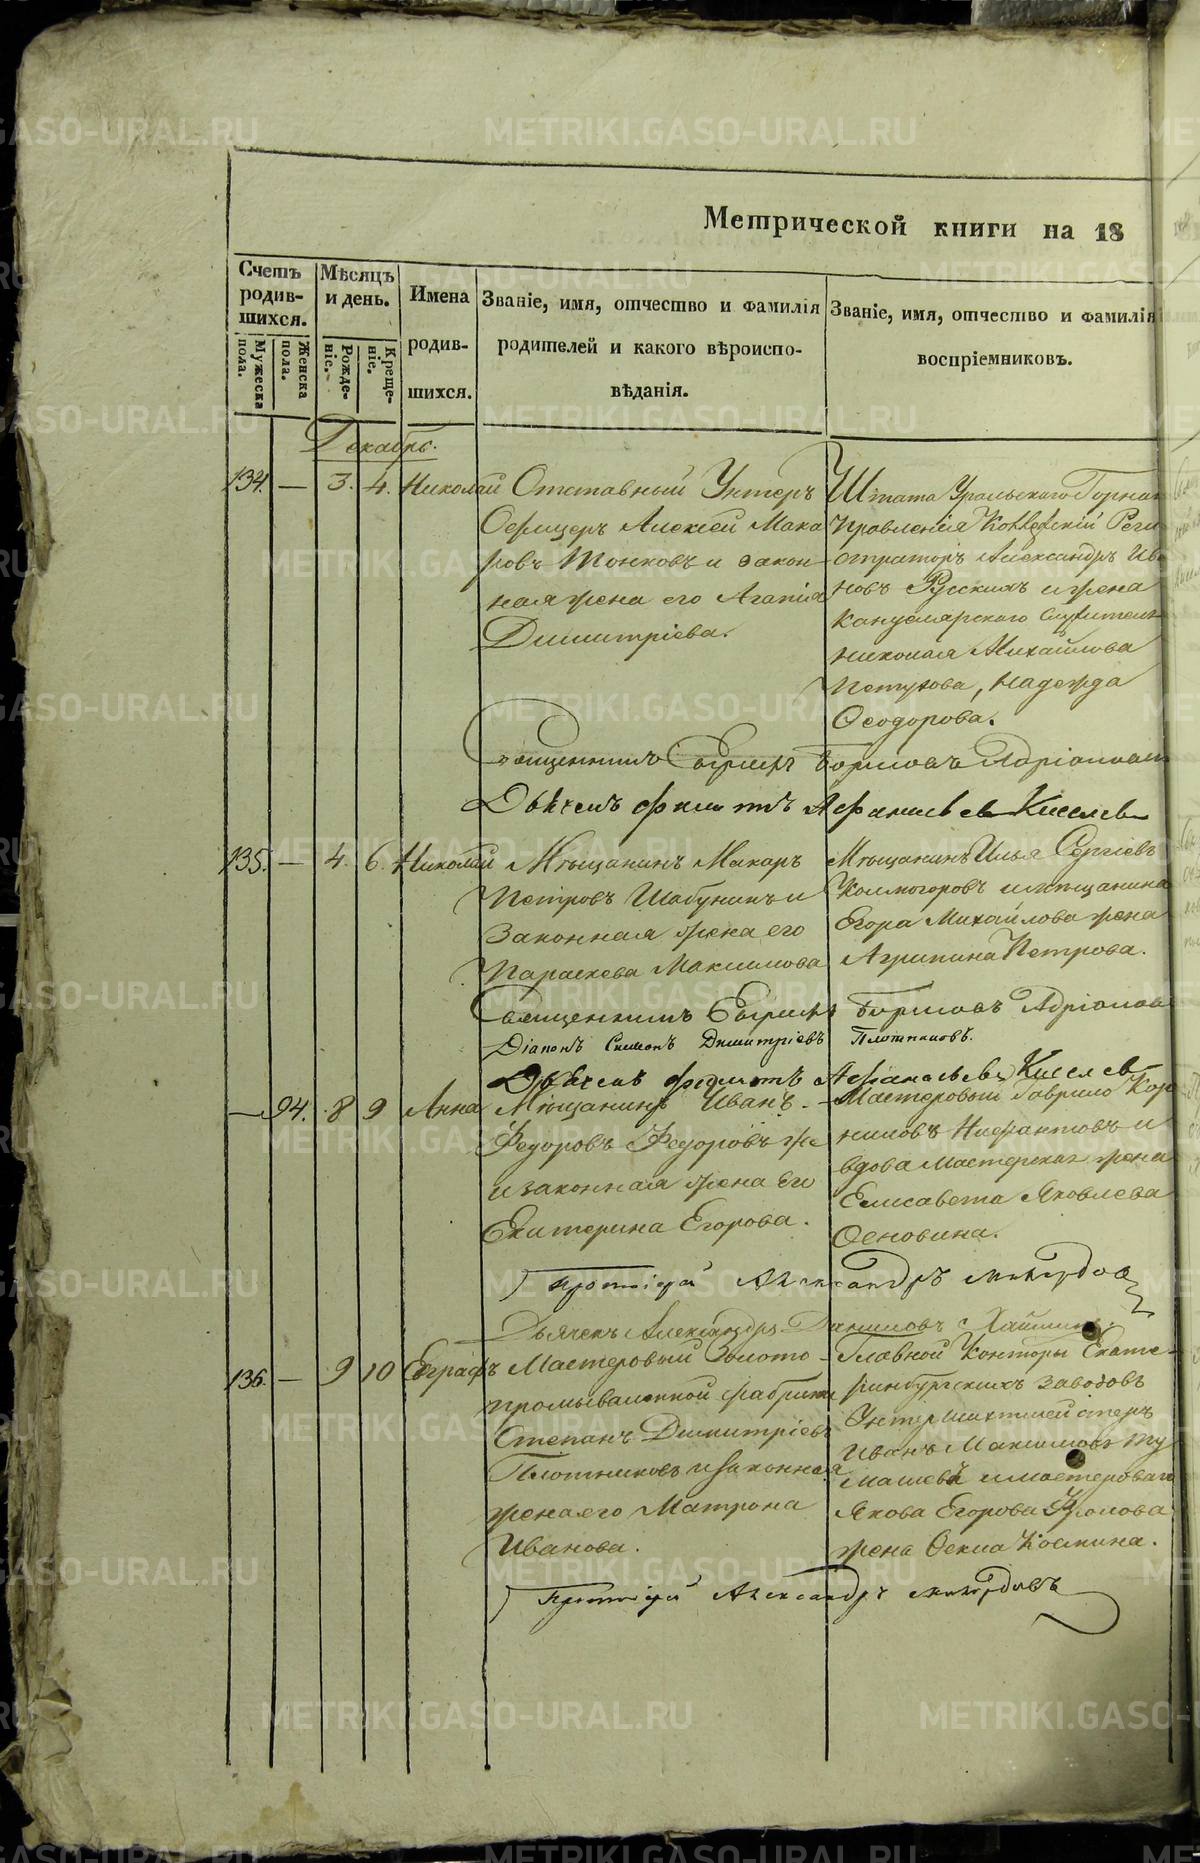 Метрической книги на 18
Счетъ родив-шихся.
Мужеска пола.
Женска пола.
Мѣсяцъ и день.
Рожде-ніе.
Креще-ніе.
Имена родив-шихся.
Званіе, имя, отчество и фамилія
родителей и какого вѣроиспо-
вѣданія.
Званіе, имя, отчество и фамилія
воспріемниковъ.
Декабрь.
134. — 3. 4. Николай
Отставный Унтеръ
Офицеръ Алексей Мака
ровъ Тонковъ и закон
ная жена его Агапія
Димитріева.
Штата Уральскаго Горнаг
Правленія Коллежскій Реги
страторъ Александръ Ива
новъ Русскихъ и жена
Канцелярскаго Служителя
Николая Михайлова
Петухова, Надежда
Ѳеодорова.
Священникъ Евфимъ Борисовъ Адріановъ
Дьячекъ Филиттъ Афанасьевъ Киселевъ
135. — 4. 6. Николай
Мѣщанинъ Макаръ
Петровъ Шабунинъ и
Законная жена его
Параскева Максимова
Мѣщанинъ Илья Сергіевъ
Колмогоровъ и мѣщанина
Егора Михайлова жена
Агрипина Петрова.
Священникъ Евфимъ Борисовъ Адріановъ
Діаконъ Симеонъ Димитріевъ Плотниковъ.
Дьячекъ Филиттъ Афанасьевъ Киселевъ
— 94. 8 9 Анна
Мѣщанинъ Иванъ
Федоровъ Федоровъ же
и законная жена Его
Екатерина Егорова.
Мастеровый Гаврило Кор
ниловъ Нифантовъ и
вдова Мастерская жена
Елисавета Яковлева
Основина.
Протоіерей Александръ
Дьячекъ Александръ Даниловъ
136. — 9 10 Евграфъ
Мастеровый Золото-
промываленной фабрики
Степанъ Димитріевъ
Плотниковъ и законная
жена его Матрона
Иванова.
Главной Конторы Екате-
ринбургскихъ заводовъ
Унтер шихтмейстеръ
Иванъ Максимовъ Ту
машевъ и мастероваго
Якова Егорова Фролова
жена Ѳекла Космина.
Протоіерей Александръ
METRIKI.GASO-URAL.RU